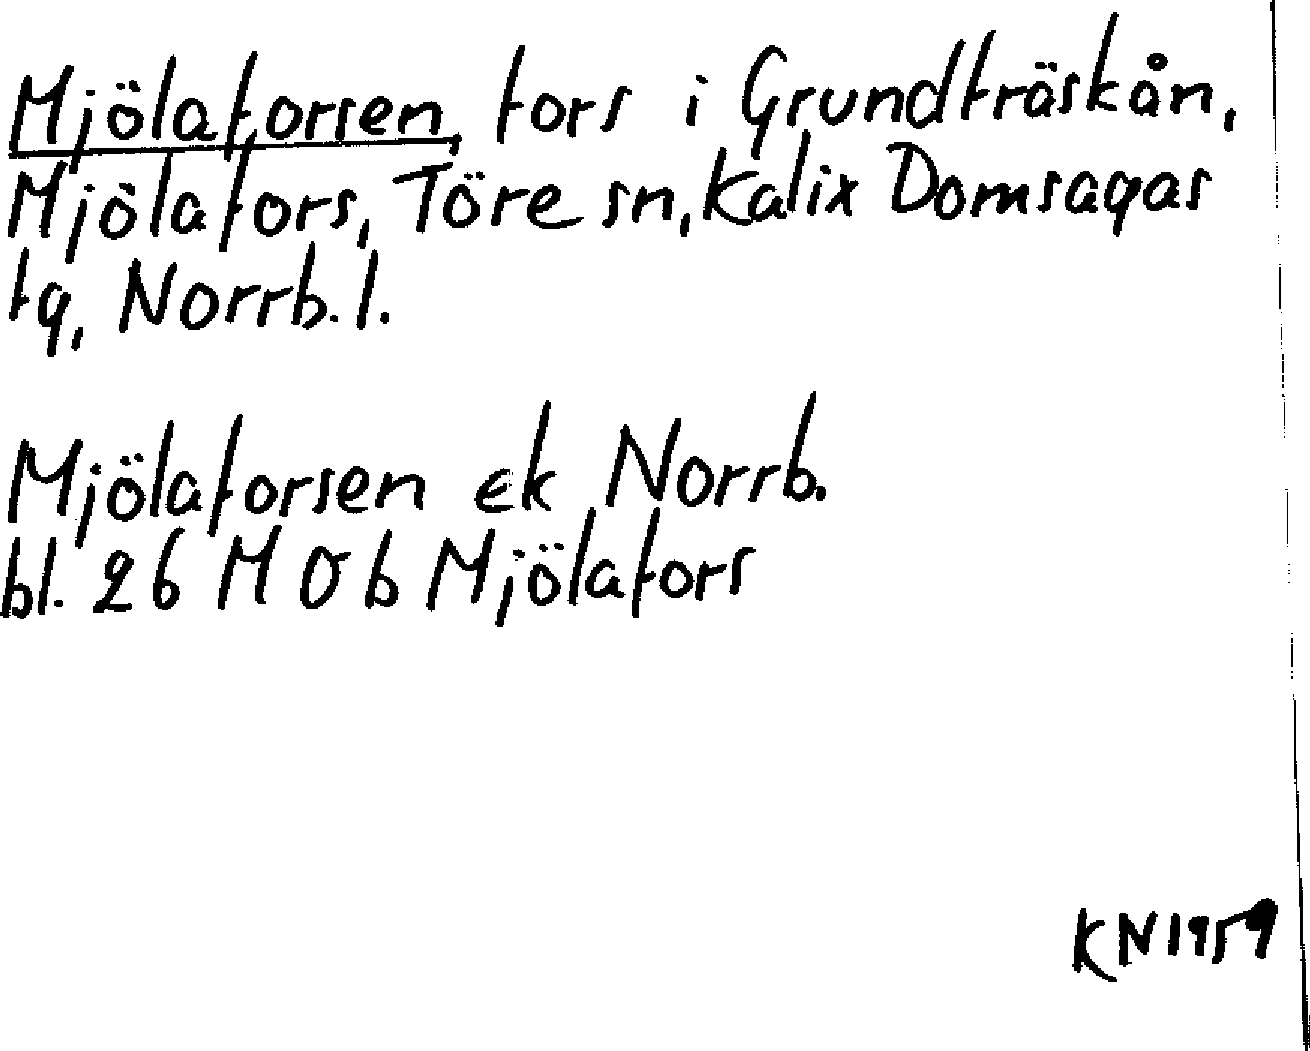 Mjölaforsen, fors i Grundträskån,
Mjölafors, Töre sn, Kalix Domsagas
tg, Norrb. l.
Mjölaforsen ek Norrb.
bl. 26 M Ö b Mjölafors
KN 1959